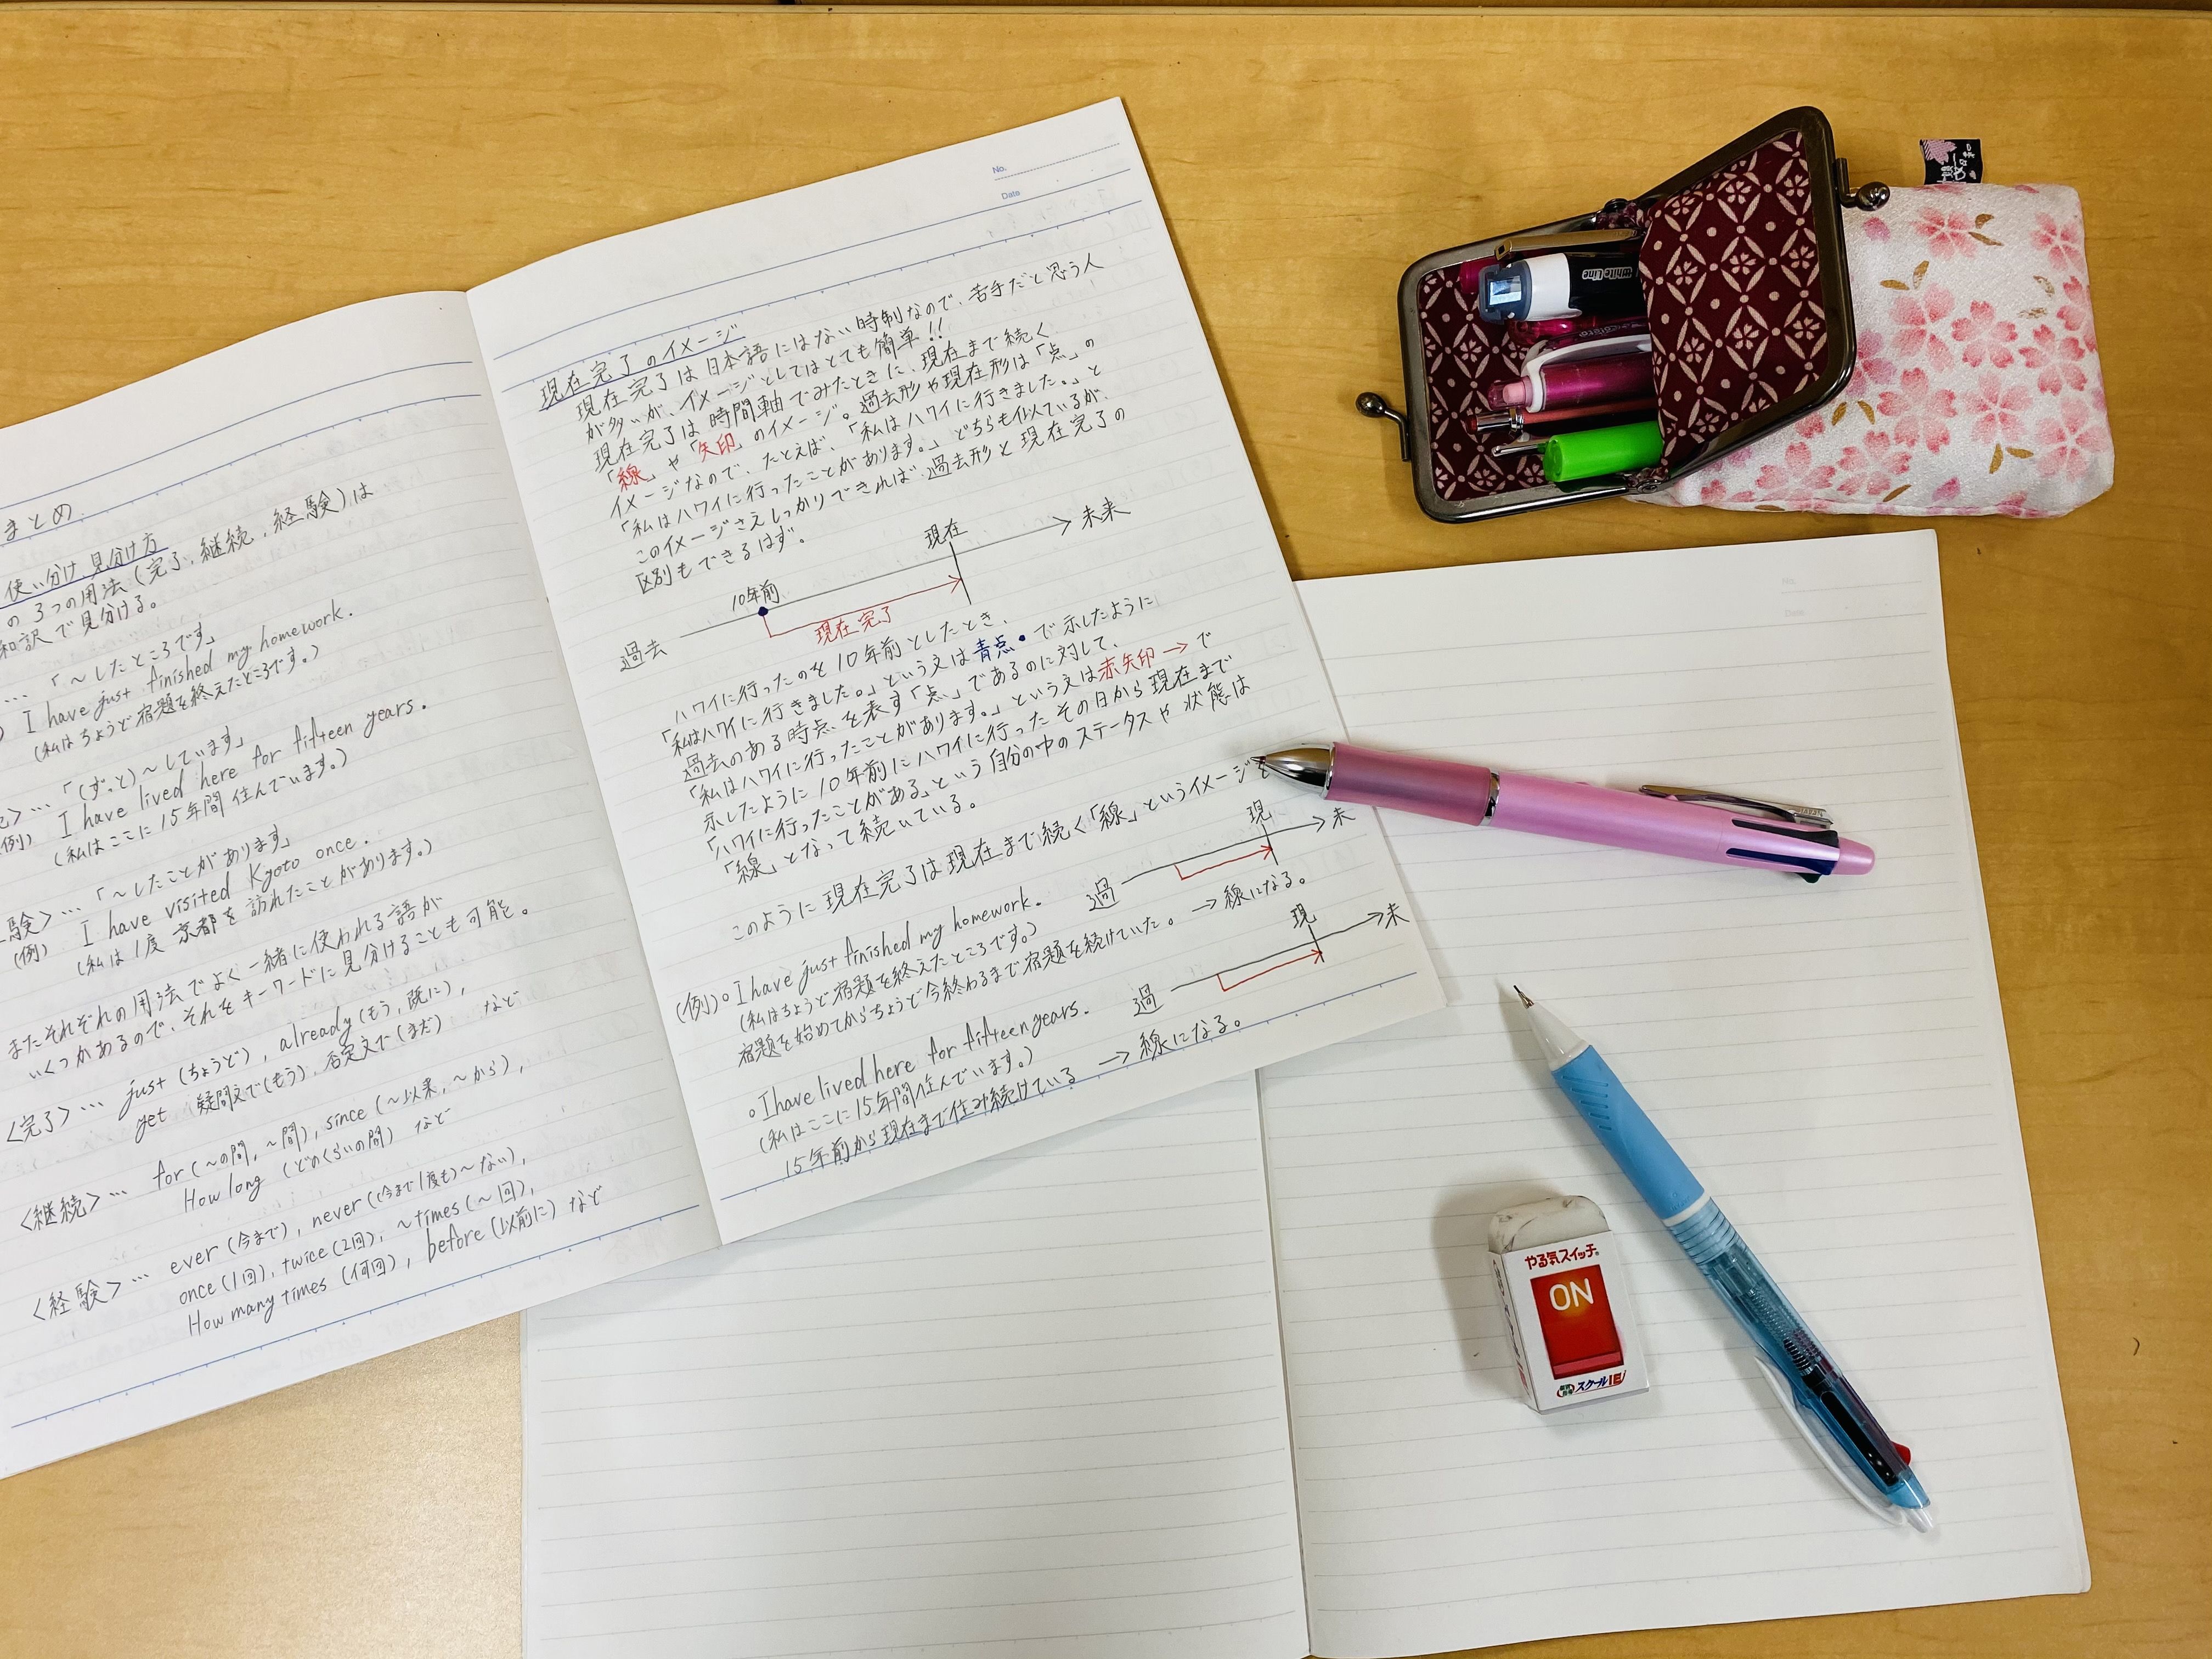 まとめ
使い分け、見分け方
の3つの用法(完了、継続、経験)は
和訳で見分ける。
… 「〜したところです」
I have just finished my homework.
(私はちょうど宿題を終えたところです。)
… 「(ずっと)〜しています」
例) I have lived here for fifteen years.
(私はここに15年間住んでいます。)
験〉… 「〜したことがあります」
(例) I have visited Kyoto once.
(私は1度京都を訪れたことがあります。)
またそれぞれの用法でよく一緒に使われる語が
いくつかあるので、それをキーワードに見分けることも可能。
〈完了〉… just(ちょうど), already(もう, 既に),
yet 疑問文で(もう), 否定文で(まだ) など
〈継続〉… for(〜の間, 〜間), since(〜以来, 〜から),
How long (どのくらいの間) など
〈経験〉… ever(今まで), never((今まで1度も)〜ない),
once(1回), twice(2回), 〜times(〜回),
How many times (何回), before(以前に) など
No.
Date
現在完了のイメージ
現在完了は日本語にはない時制なので、苦手だと思う人
が多いが、イメージとしてはとても簡単!!
現在完了は時間軸でみたときに、現在まで続く
「線」や「矢印」のイメージ。過去形や現在形は「点」の
イメージなので、たとえば、「私はハワイに行きました。」と
「私はハワイに行ったことがあります。」どちらも似ているが、
このイメージさえしっかりできれば、過去形と現在完了の
区別もできるはず。
過去 10年前 現在完了 現在 未来
ハワイに行ったのを10年前としたとき、
「私はハワイに行きました。」という文は青点・で示したように
過去のある時点を表す「点」であるのに対して、
「私はハワイに行ったことがあります。」という文は赤矢印→で
示したように10年前にハワイに行ったその日から現在まで
「ハワイに行ったことがある」という自分の中のステータスや状態は
「線」となって続いている。
このように現在完了は現在まで続く「線」というイメージを
過 現 未
(例)○I have just finished my homework.
(私はちょうど宿題を終えたところです。)
宿題を始めてからちょうど今終わるまで宿題を続けていた。→線になる。
過 現 未
○I have lived here for fifteen years.
(私はここに15年間住んでいます。)
15年前から現在まで住み続けている → 線になる。
whiteLine
やる気スイッチ
ON
スクールIE